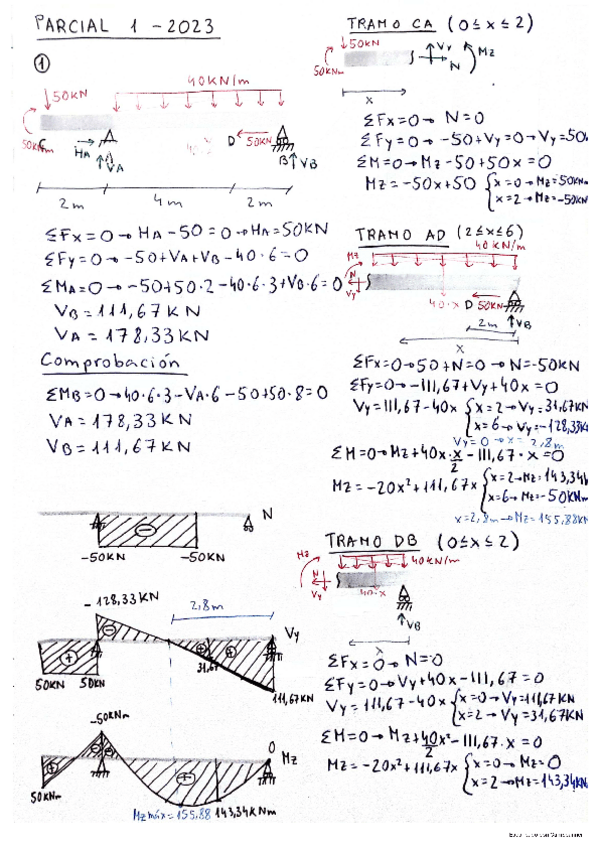 PARCIAL 1 - 2023
①
50KN
40KN/m
50KNm
C
HA
VA
D
50KN
B
VB
2m
4m
2m
ΣFx=0→HA-50=0→HA=50KN
ΣFy=0→-50+VA+VB-40·6=0
ΣMA=0→-50+50·2-40·6·3+VB·6=0
VB=111,67KN
VA=178,33KN
Comprobación
ΣMB=0→40·6·3-VA·6-50+50·8=0
VA=178,33KN
VB=111,67KN
N
-50KN
-50KN
-128,33KN
2,8m
Vy
50KN
50KN
31,67
111,67KN
-50KNm
0
Mz
50KNm
Mz máx=155,88
143,34KNm
TRAMO CA (0≤x≤2)
50KN
50KNm
Vy
N
Mz
x
ΣFx=0→N=0
ΣFy=0→-50+Vy=0→Vy=50
ΣM=0→Mz-50+50x=0
Mz=-50x+50
x=0→Mz=50KNm
x=2→Mz=-50KN
TRAMO AD (2≤x≤6)
40KN/m
Mz
N
Vy
40·x
D
50KN
VB
2m
x
ΣFx=0→50+N=0→N=-50KN
ΣFy=0→-111,67+Vy+40x=0
Vy=111,67-40x
x=2→Vy=31,67KN
x=6→Vy=-128,33K
Vy=0→x=2,8m
ΣM=0→Mz+40x·x/2-111,67·x=0
Mz=-20x²+111,67x
x=2→Mz=143,34K
x=6→Mz=-50KNm
x=2,8m→Mz=155,88KN
TRAMO DB (0≤x≤2)
Mz
40KN/m
N
Vy
40·x
VB
x
ΣFx=0→N=0
ΣFy=0→Vy+40x-111,67=0
Vy=111,67-40x
x=0→Vy=111,67KN
x=2→Vy=31,67KN
ΣM=0→Mz+40x²/2-111,67·x=0
Mz=-20x²+111,67x
x=0→Mz=0
x=2→Mz=143,34KN